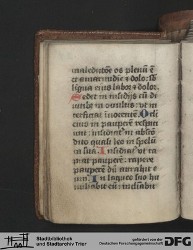 maledictōe os plenū ē
et amaritudine ⁊ dolo: sb
lingua eius labor ⁊ dolor.
Sedet in insidijs cū di
uitibꝯ in occultis: vt in
terficiat innocentē. Ocľi
eius in pauperē respici
unt: insidiat᷑ in abscon
dito quasi leo in spelun
ca sua. Insidiat᷑ vt ra
piat pauperē: rapere
pauperē dū attrahit e
um. In laqueo suo hu
miliabit eū: inclinabit
Stadtbibliothek
und Stadtarchiv Trier
gefördert von der
Deutschen Forschungsgemeinschaft
DFG